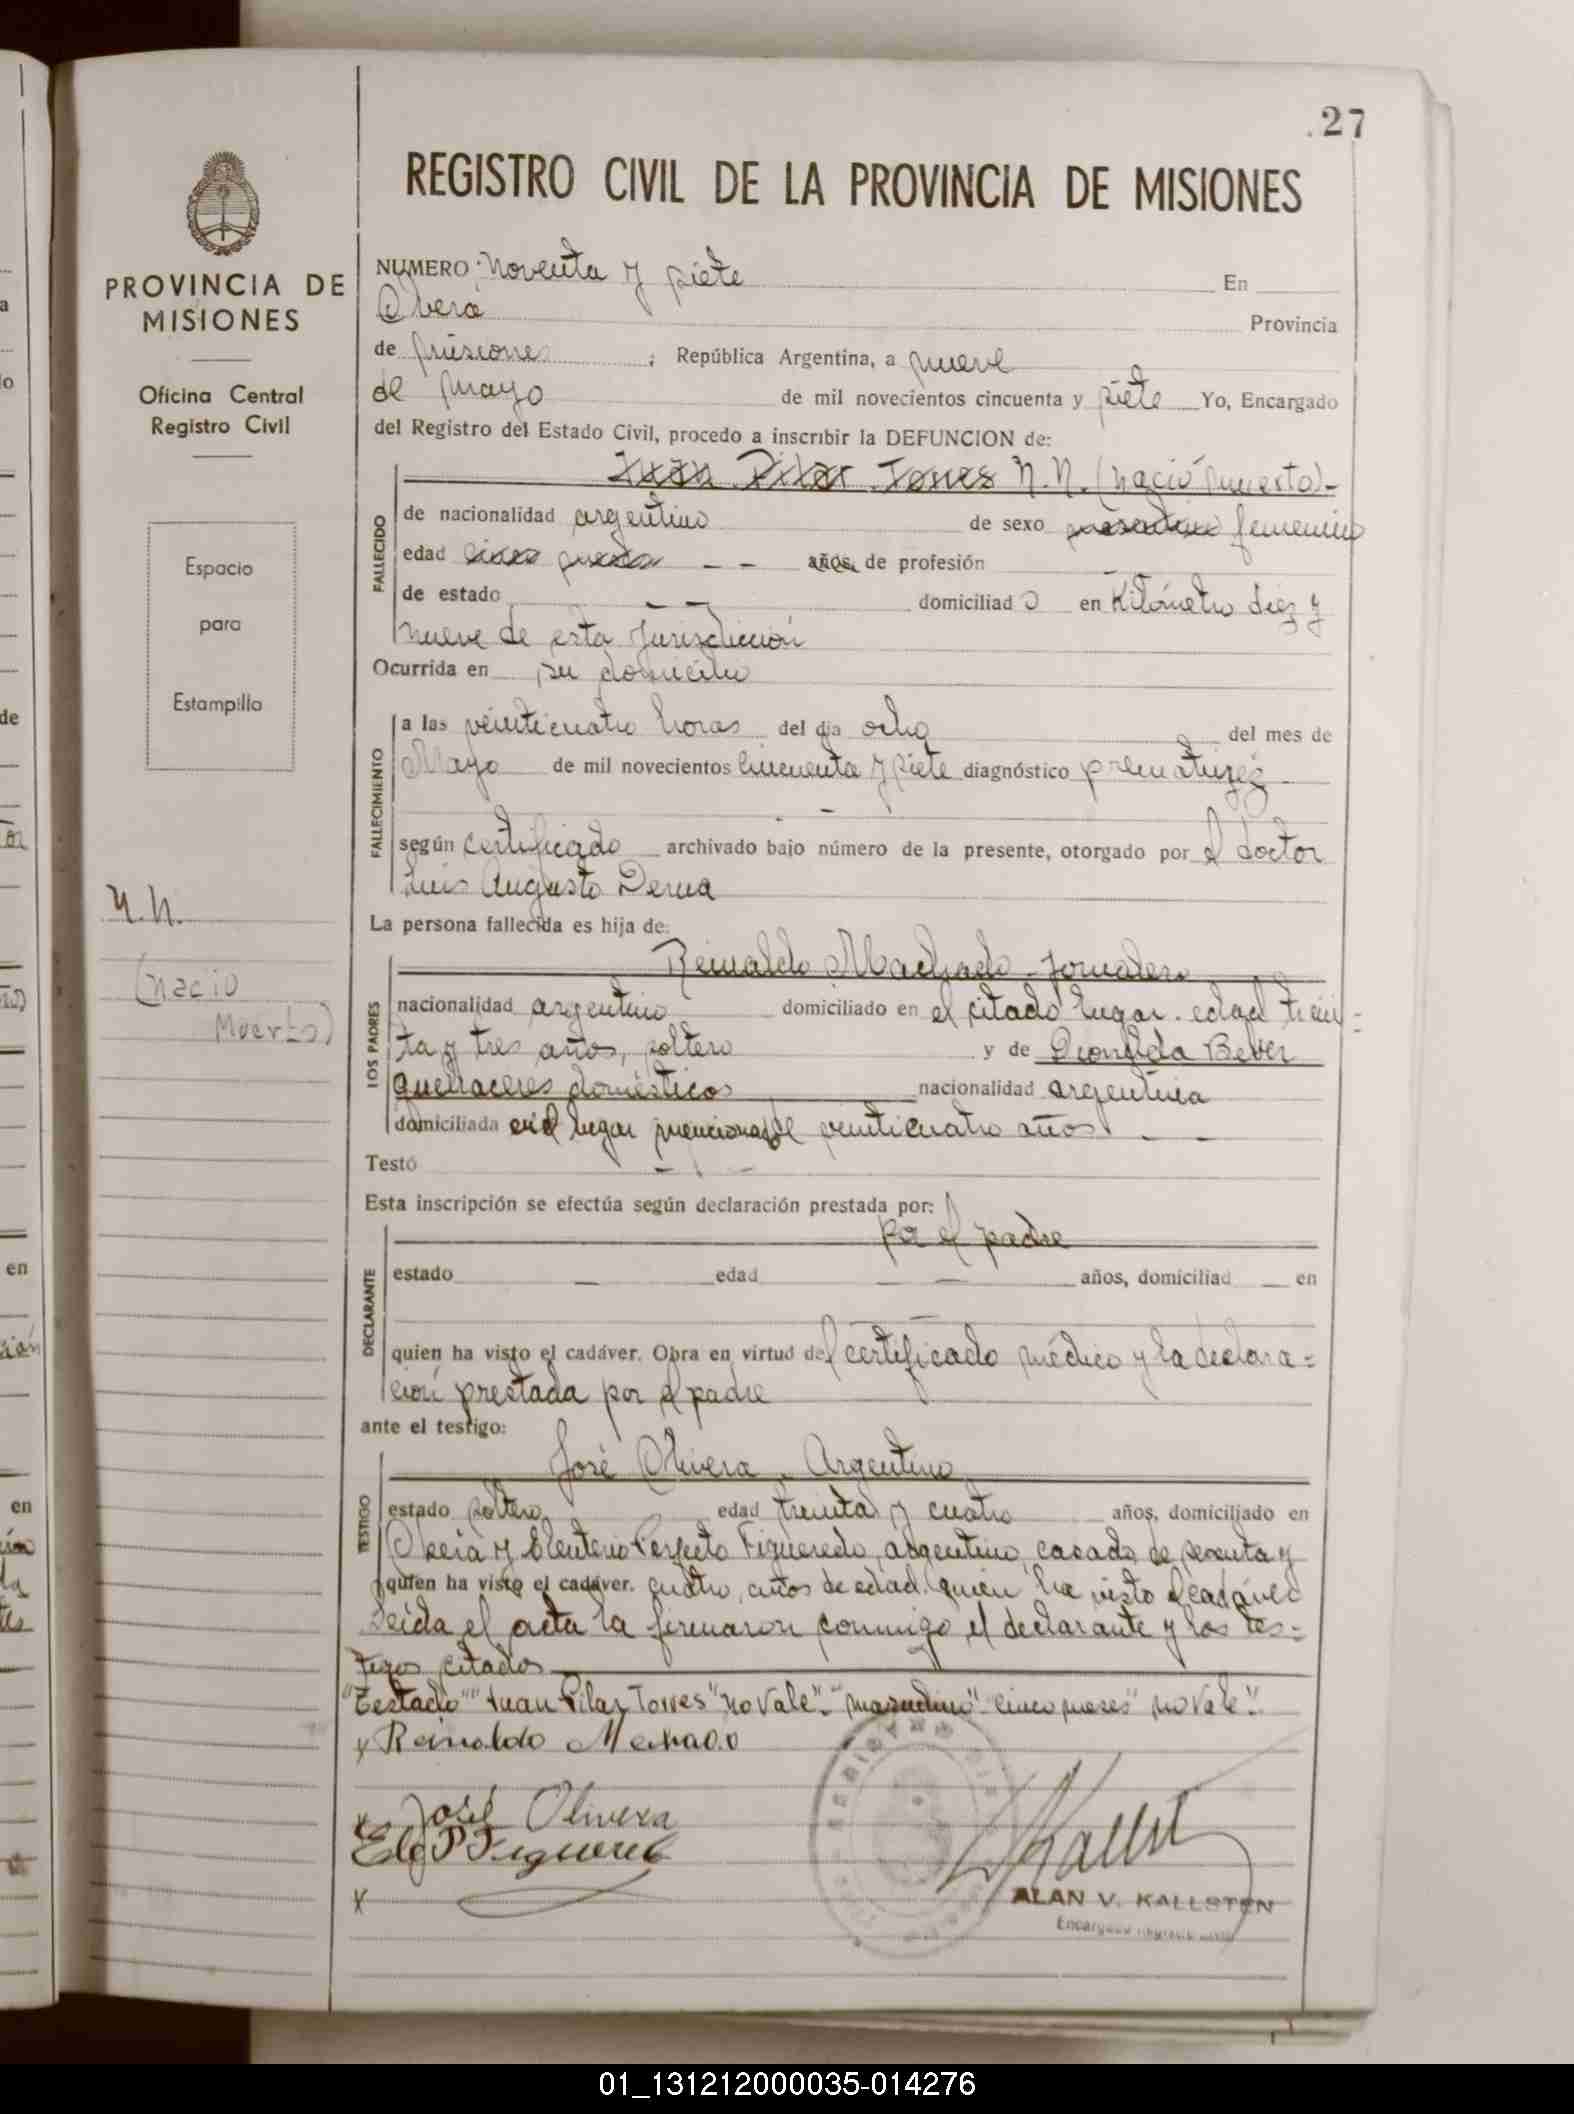 27
REGISTRO CIVIL DE LA PROVINCIA DE MISIONES
PROVINCIA DE
MISIONES
Oficina Central
Registro Civil
Espacio
para
Estampilla
N.N.
(nació
Muerto)
NUMERO Noventa y siete En
Oberá Provincia
de Misiones ; República Argentina, a nueve
de mayo de mil novecientos cincuenta y siete Yo, Encargado
del Registro del Estado Civil, procedo a inscribir la DEFUNCION de:
FALLECIDO
Juan Pilar Torres N.N. (nació muerto)-
de nacionalidad argentino de sexo masculino femenino
edad cinco meses - - años, de profesión -
de estado - - domiciliado en Kilómetro diez y
nueve de esta Jurisdicción
Ocurrida en su domicilio
FALLECIMIENTO
a las veinticuatro horas del día ocho del mes de
Mayo de mil novecientos cincuenta y siete diagnóstico prematurez
- -
según certificado archivado bajo número de la presente, otorgado por el doctor
Luis Augusto Derna
La persona fallecida es hija de:
LOS PADRES
Reinaldo Machado - Jornalero
nacionalidad argentino domiciliado en el citado lugar. edad trein=
ta y tres años, soltero y de Dionilda Bever
quehaceres domésticos nacionalidad argentina
domiciliada en el lugar mencionado de veinticuatro años - -
Testó - -
Esta inscripción se efectúa según declaración prestada por:
DECLARANTE
por el padre
estado - edad - - años, domiciliad - en
quien ha visto el cadáver. Obra en virtud del certificado médico y la declara=
ción prestada por el padre
ante el testigo:
TESTIGO
José Olivera - Argentino
estado soltero edad treinta y cuatro años, domiciliado en
Oberá y Eleuterio Perfecto Figueredo, argentino, casado, de sesenta y
quien ha visto el cadáver. cuatro, años de edad. quien ha visto el cadáver
Leída el acta la firmaron conmigo, el declarante y los tes=
tigos citados
"Testado" "Juan Pilar Torres" no Vale"- "masculino" "cinco meses" no Vale"-
x Reinaldo Machado
x José Olivera
Ele P Figuered
x
ALAN V. KALLSTEN
01_131212000035-014276